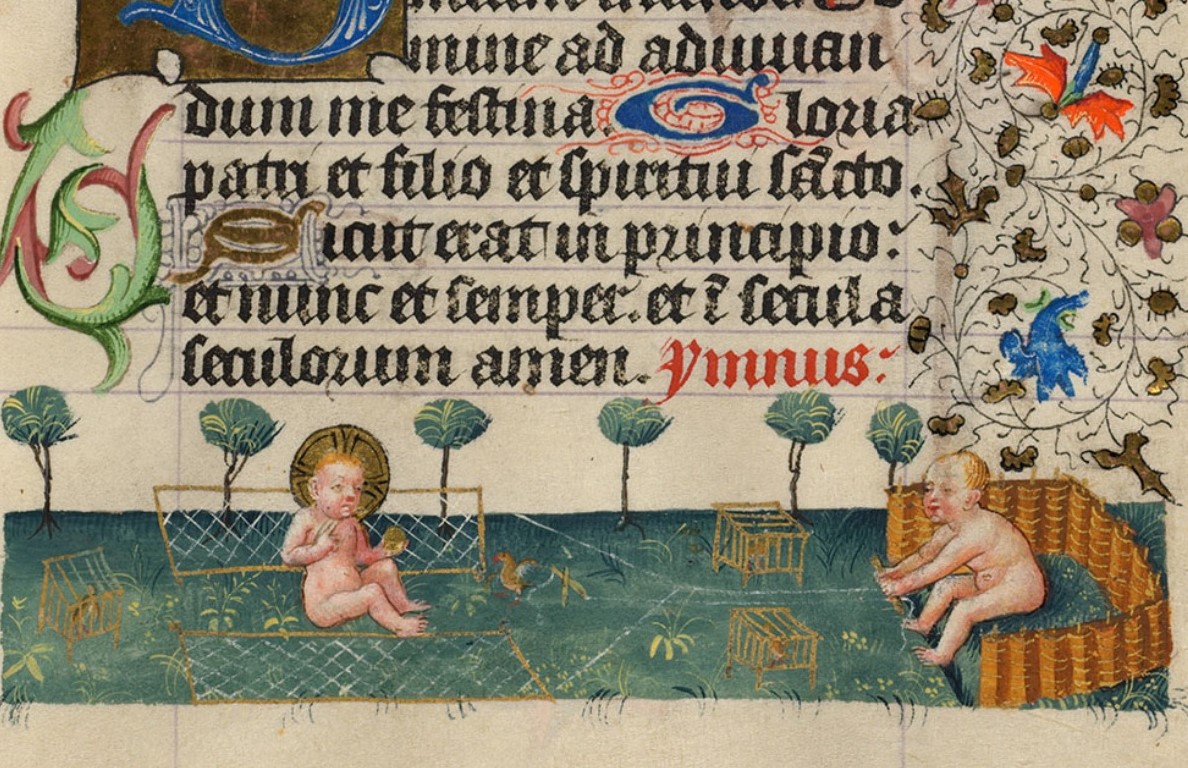 mine ad adiuuan
dum me festina. Gloria
patri et filio et spiritui sācto.
Sicut erat in principio:
et nunc et semper. et ī secula
seculorum amen. ymnus: